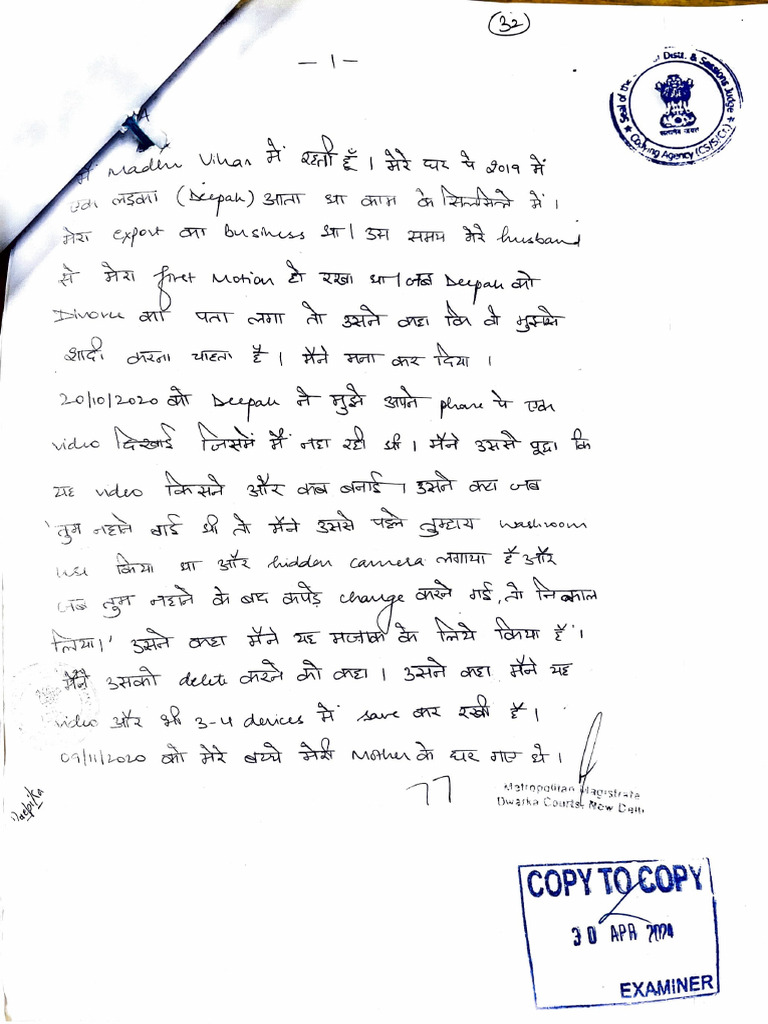 32
- 1 -
Seal of the Distt. & Sessions Judge
Copying Agency (CS/S/Cr.)
मैं Madhu Vihar में रहती हूँ। मेरे घर पे 2019 में
एक लड़का (Deepak) आता था काम के सिलसिले में।
मेरा export का business था। उस समय मेरे husband
से मेरा first Motion हो रखा था। जब Deepak को
Divorce का पता लगा तो उसने कहा कि वो मुझसे
शादी करना चाहता है। मैंने मना कर दिया।
20/10/2020 को Deepak ने मुझे अपने phone पे एक
video दिखाई जिसमें मैं नहा रही थी। मैंने उससे पूछा कि
यह video किसने और कब बनाई। उसने कहा जब
'तुम नहाने गई थी तो मैंने उससे पहले तुम्हारा washroom
use किया था और hidden camera लगाया है और
जब तुम नहाने के बाद कपड़े change करने गई, तो निकाल
लिया।' उसने कहा मैंने यह मजाक के लिये किया है।
मैंने उसको delete करने को कहा। उसने कहा मैंने यह
video और भी 3-4 devices में save कर रखी है।
09/11/2020 को मेरे बच्चे मेरी Mother के घर गए थे।
77
Metropolitan Magistrate
Dwarka Courts, New Delhi
Deepika
COPY TO COPY
30 APR 2024
EXAMINER